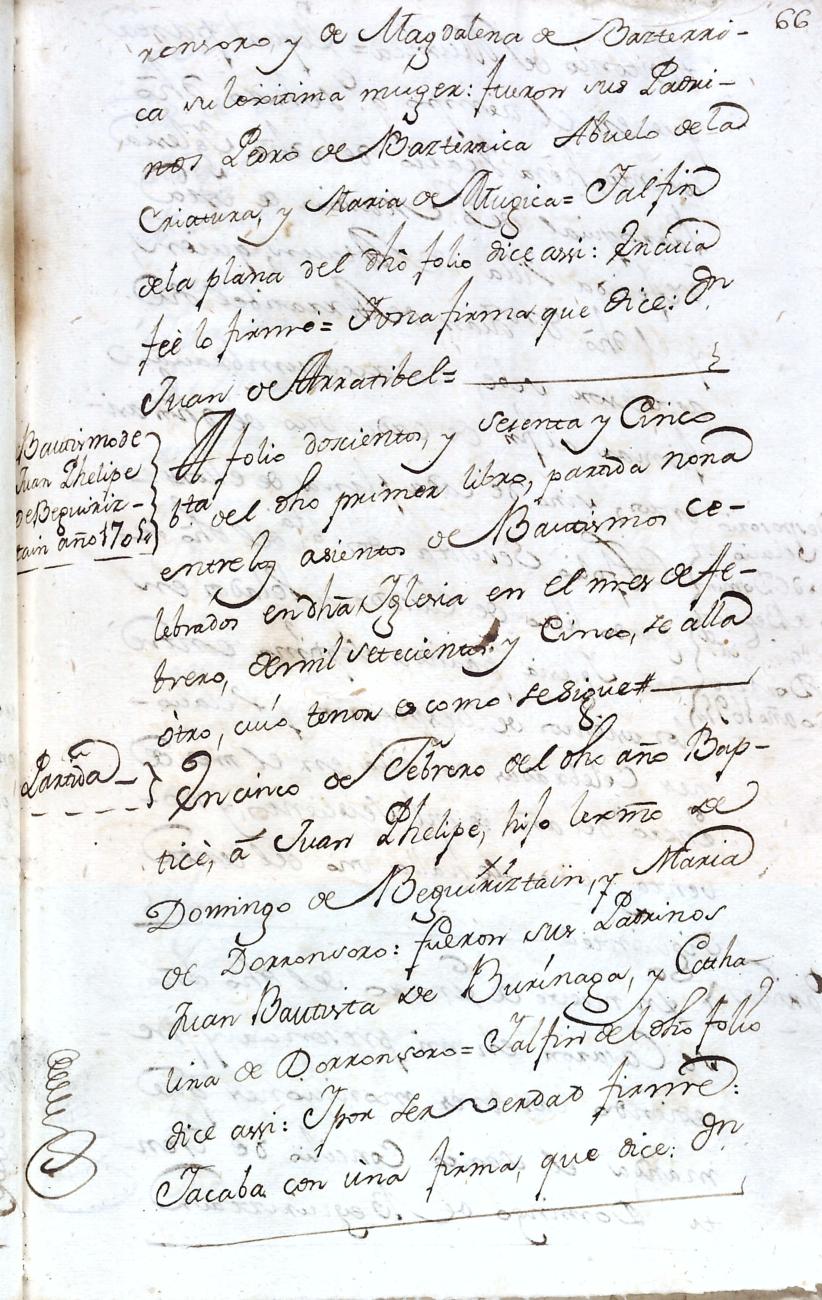 66
ronsoro y de Magdalena de Bazterri-
ca su lexitima muger: fueron sus Padri-
nos Pedro de Bazterrica Abuelo de la
Criatura, y Maria de Mugica= Ial fin
de la plana del dho folio dice assi: En cuia
feè lo firmè= I una firma que dice: Dn
Juan de Arratibel=
Bautismo de
Juan Phelipe
de Beguiriz-
tain año 1705
A folio doscientos, y sesenta y Cinco
bta del dho primer libro, partida nona
entre los asientos de Bautismos ce-
lebrados en dha Iglesia en el mes de fe-
brero, de mil settecientos y Cinco, se alla
otro, cuio tenor es como se sigue#
Partida
En cinco de Febrero del dho año Bap-
ticè, a Juan Phelipe, hijo lexmo de
Domingo de Beguiriztain, y Maria
de Dorronsoro: fueron sus Padrinos
Juan Bautista de Burinaga, y Catha-
lina de Dorronsoro= Ial fin del dho folio
dice assi: I por ser verdad firmè:
I acaba con una firma, que dice: Dn